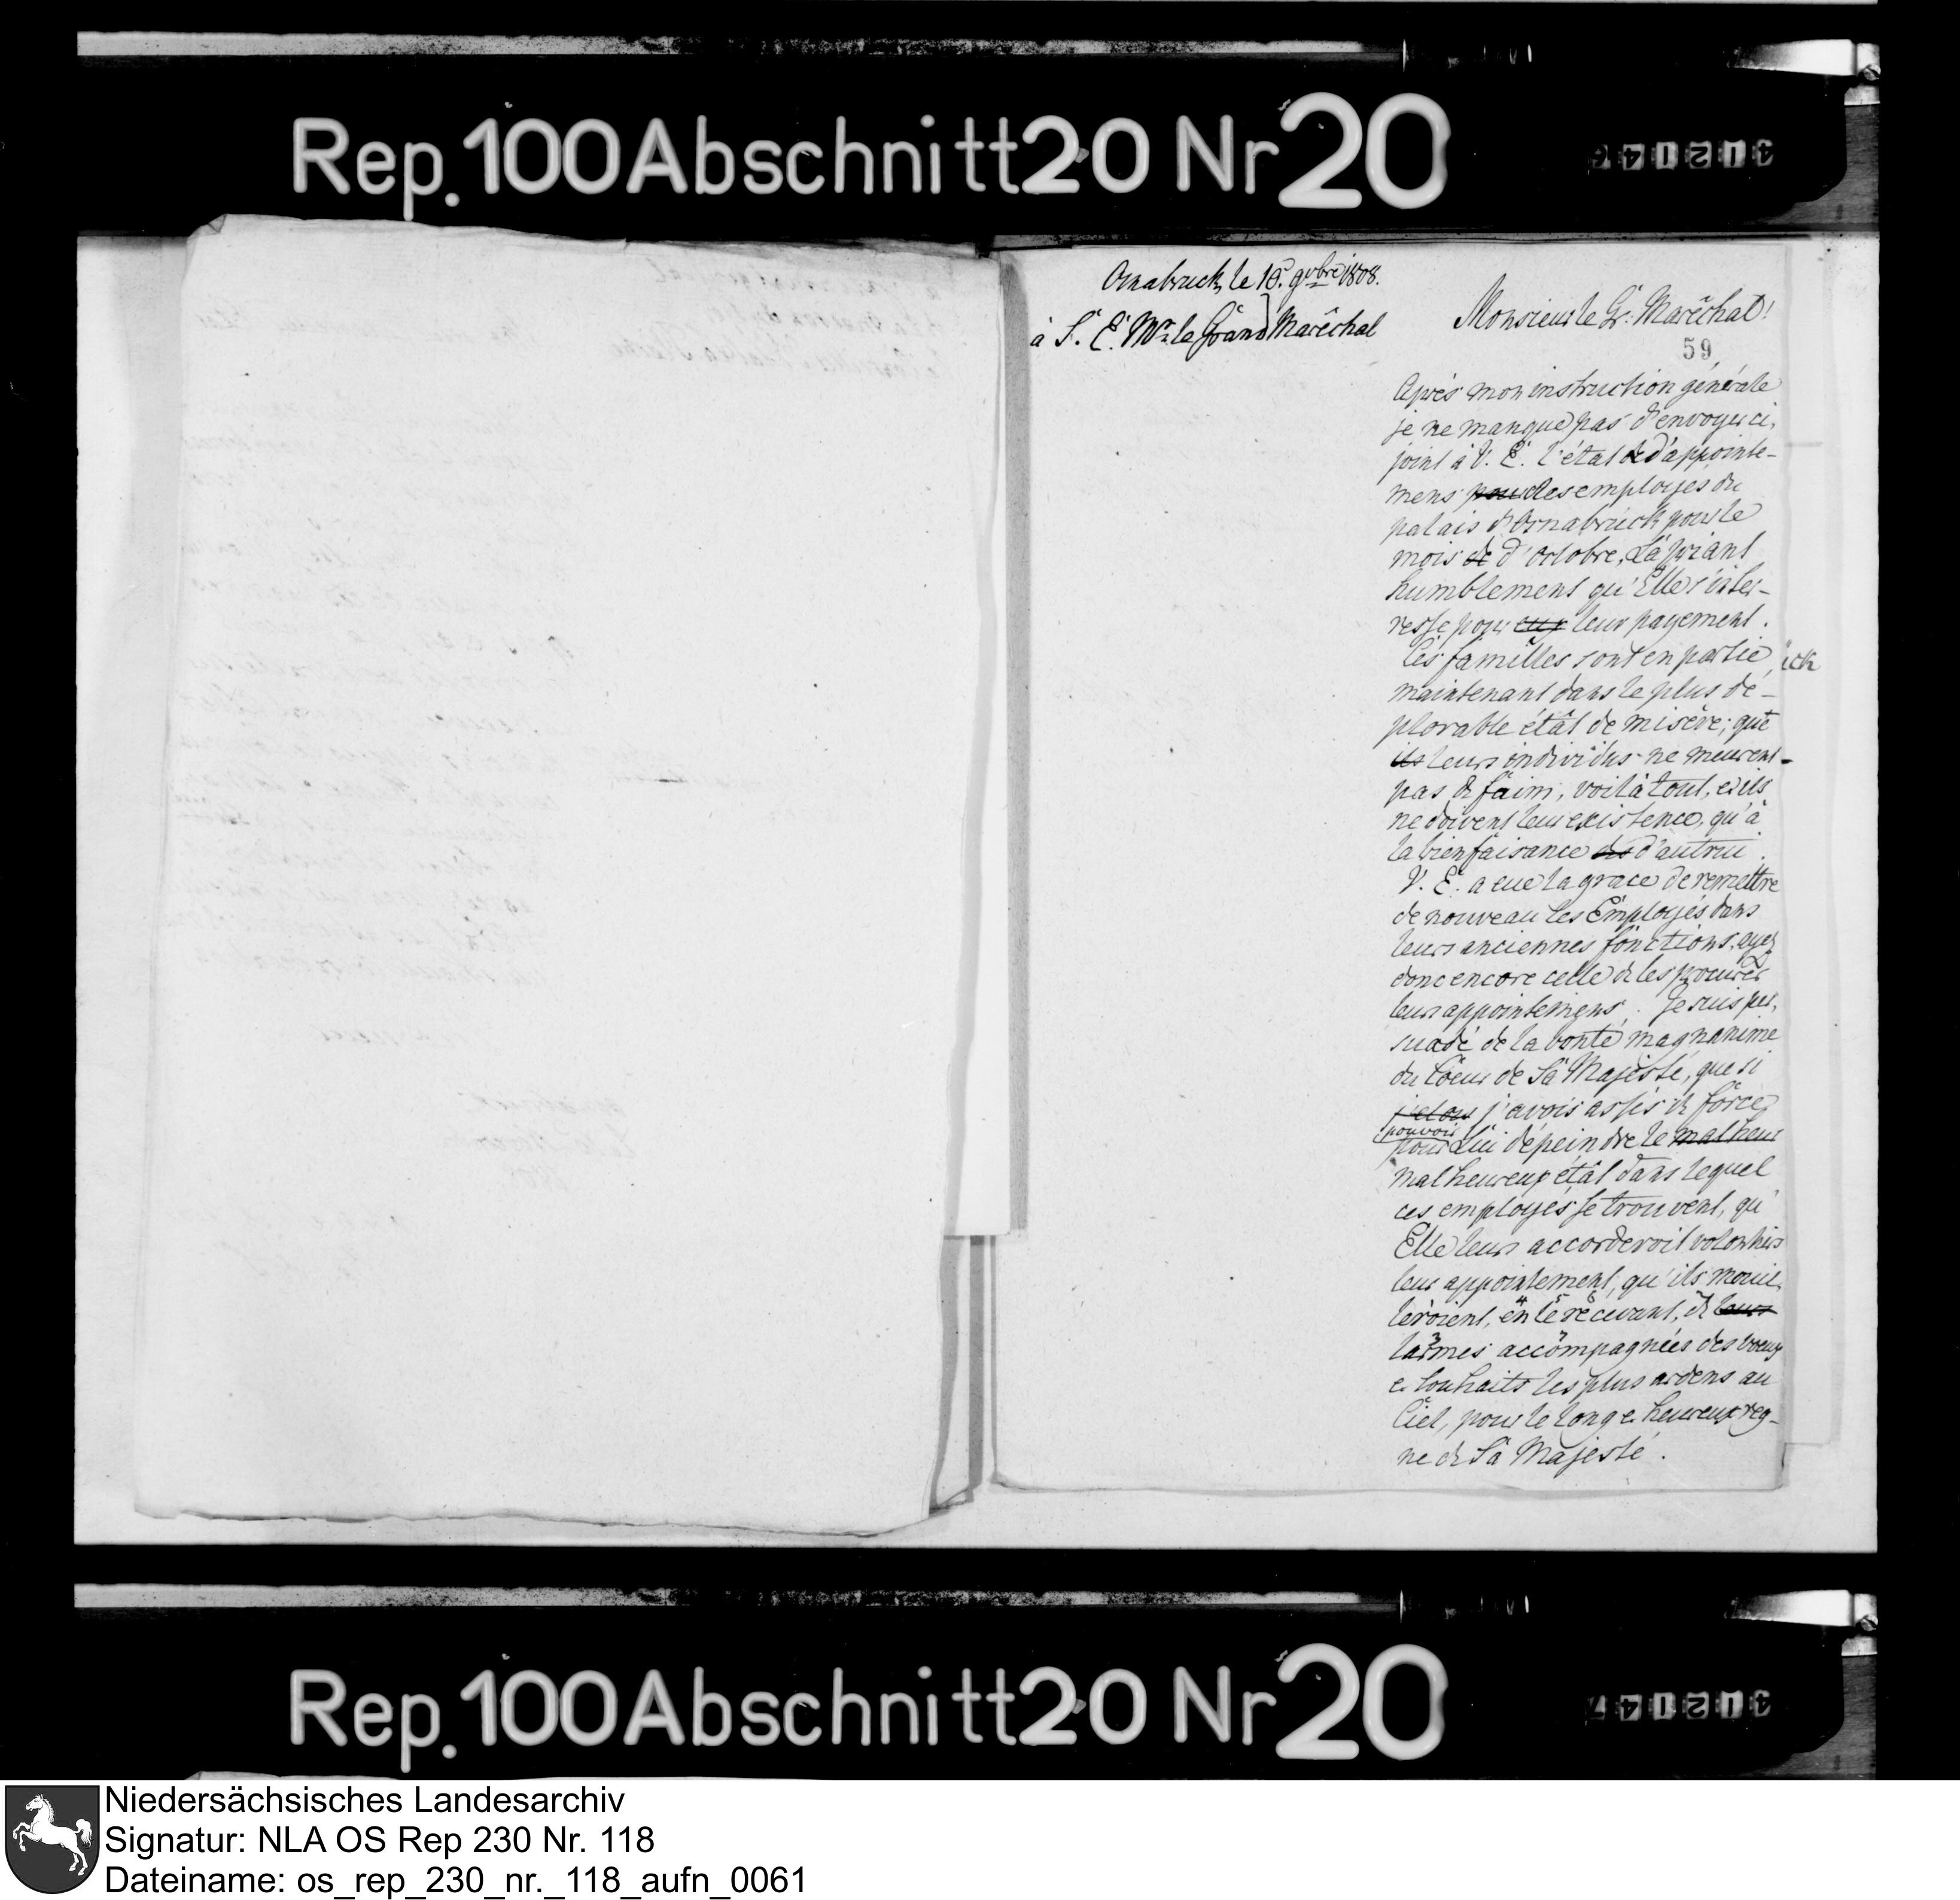 Rep. 100 Abschnitt 20 Nr 20
Osnabruck, le 18. 9vbre 1808.
à S. E. Mr. le Grand Maréchal
Monsieur le Gr. Maréchal!
59
Après mon instruction générale
je ne manque pas d'envoyer ci,
joint à V. E. l'état de d'appointe-
mens pour des employes du
palais d'Osnabrück pour le
mois de d'Octobre, La priant
humblement qu'Elle s'inter-
resse pour eux leur payement.
Ces familles sont en partie
ick
maintenant dans le plus dé-
plorable étât de misère; que
ils leurs individus ne meurent-
pas de faim, voilà tout, et ils
ne doivent leur existence, qu'à
la bienfaisance des d'autrui.
V. E. a eue la grace de remettre
de nouveau les Employés dans
leurs anciennes fonctions, ayez
donc encore celle de les procurer
leurs appointemens. Je suis per,
suadé de la bonté magnanime
du Coeur de Sa Majesté, que si
j'avois assés de force
pouvoir
pour Lui dépeindre le malheur
malheureux étât dans lequel
ces employés se trouvent, qu'
Elle leurs accorderoit volontiers
leur appointement, qu'ils mouil,
leroient, en le recevant, de leurs
larmes accompagnées des voeux
et souhaits les plus ardens au
Ciel, pour le long et heureux reg-
ne de Sa Majesté.
Rep. 100 Abschnitt 20 Nr 20
Niedersächsisches Landesarchiv
Signatur: NLA OS Rep 230 Nr. 118
Dateiname: os_rep_230_nr._118_aufn_0061